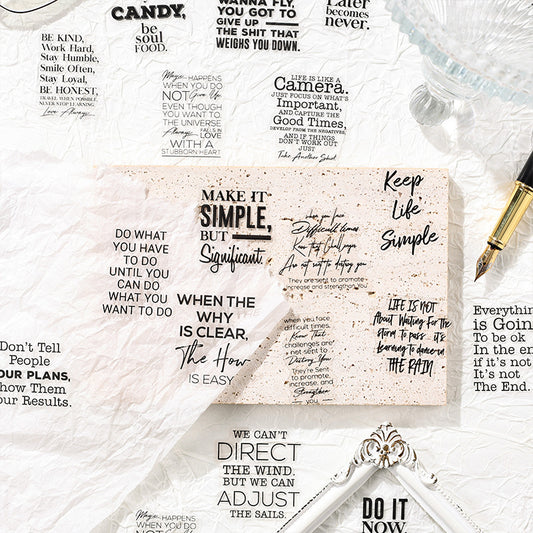 CANDY,
be
soul
FOOD.
WANNA FLY,
YOU GOT TO
GIVE UP
THE SHIT THAT
WEIGHS YOU DOWN.
Later
becomes
never.
BE KIND,
Work Hard,
Stay Humble,
Smile Often,
Stay Loyal,
BE HONEST,
TRAVEL WHEN POSSIBLE,
NEVER STOP LEARNING
Love Always
Magic HAPPENS
WHEN YOU DO
NOT Give Up
EVEN THOUGH
YOU WANT TO.
THE UNIVERSE
Always FALLS IN
LOVE
WITH A
STUBBORN HEART
LIFE IS LIKE A
Camera.
JUST FOCUS ON WHAT'S
Important,
AND CAPTURE THE
Good Times,
DEVELOP FROM THE NEGATIVES,
AND IF THINGS
DON'T WORK OUT
JUST
Take Another Shot
DO WHAT
YOU HAVE
TO DO
UNTIL YOU
CAN DO
WHAT YOU
WANT TO DO
MAKE IT
SIMPLE,
BUT
Significant.
when you face
Difficult times
Know that Challenges
Are not sent to destroy you
They are sent to promote
increase and strengthen You
Keep
Life
Simple
WHEN THE
WHY
IS CLEAR,
The How
IS EASY
when you face
difficult times,
Know That
challenges are
not sent to
Destroy You
They're Sent
to promote,
increase, and
Strengthen
you
LIFE IS NOT
About Waiting For the
storm to pass it's
learning to dance in
THE RAIN
Everything
is Goin
To be ok
In the en
if it's not
It's not
The End.
Don't Tell
People
OUR PLANS,
how Them
our Results.
WE CAN'T
DIRECT
THE WIND.
BUT WE CAN
ADJUST
THE SAILS.
Magic HAPPENS
WHEN YOU DO
NOT Give Up
DO IT
NOW.